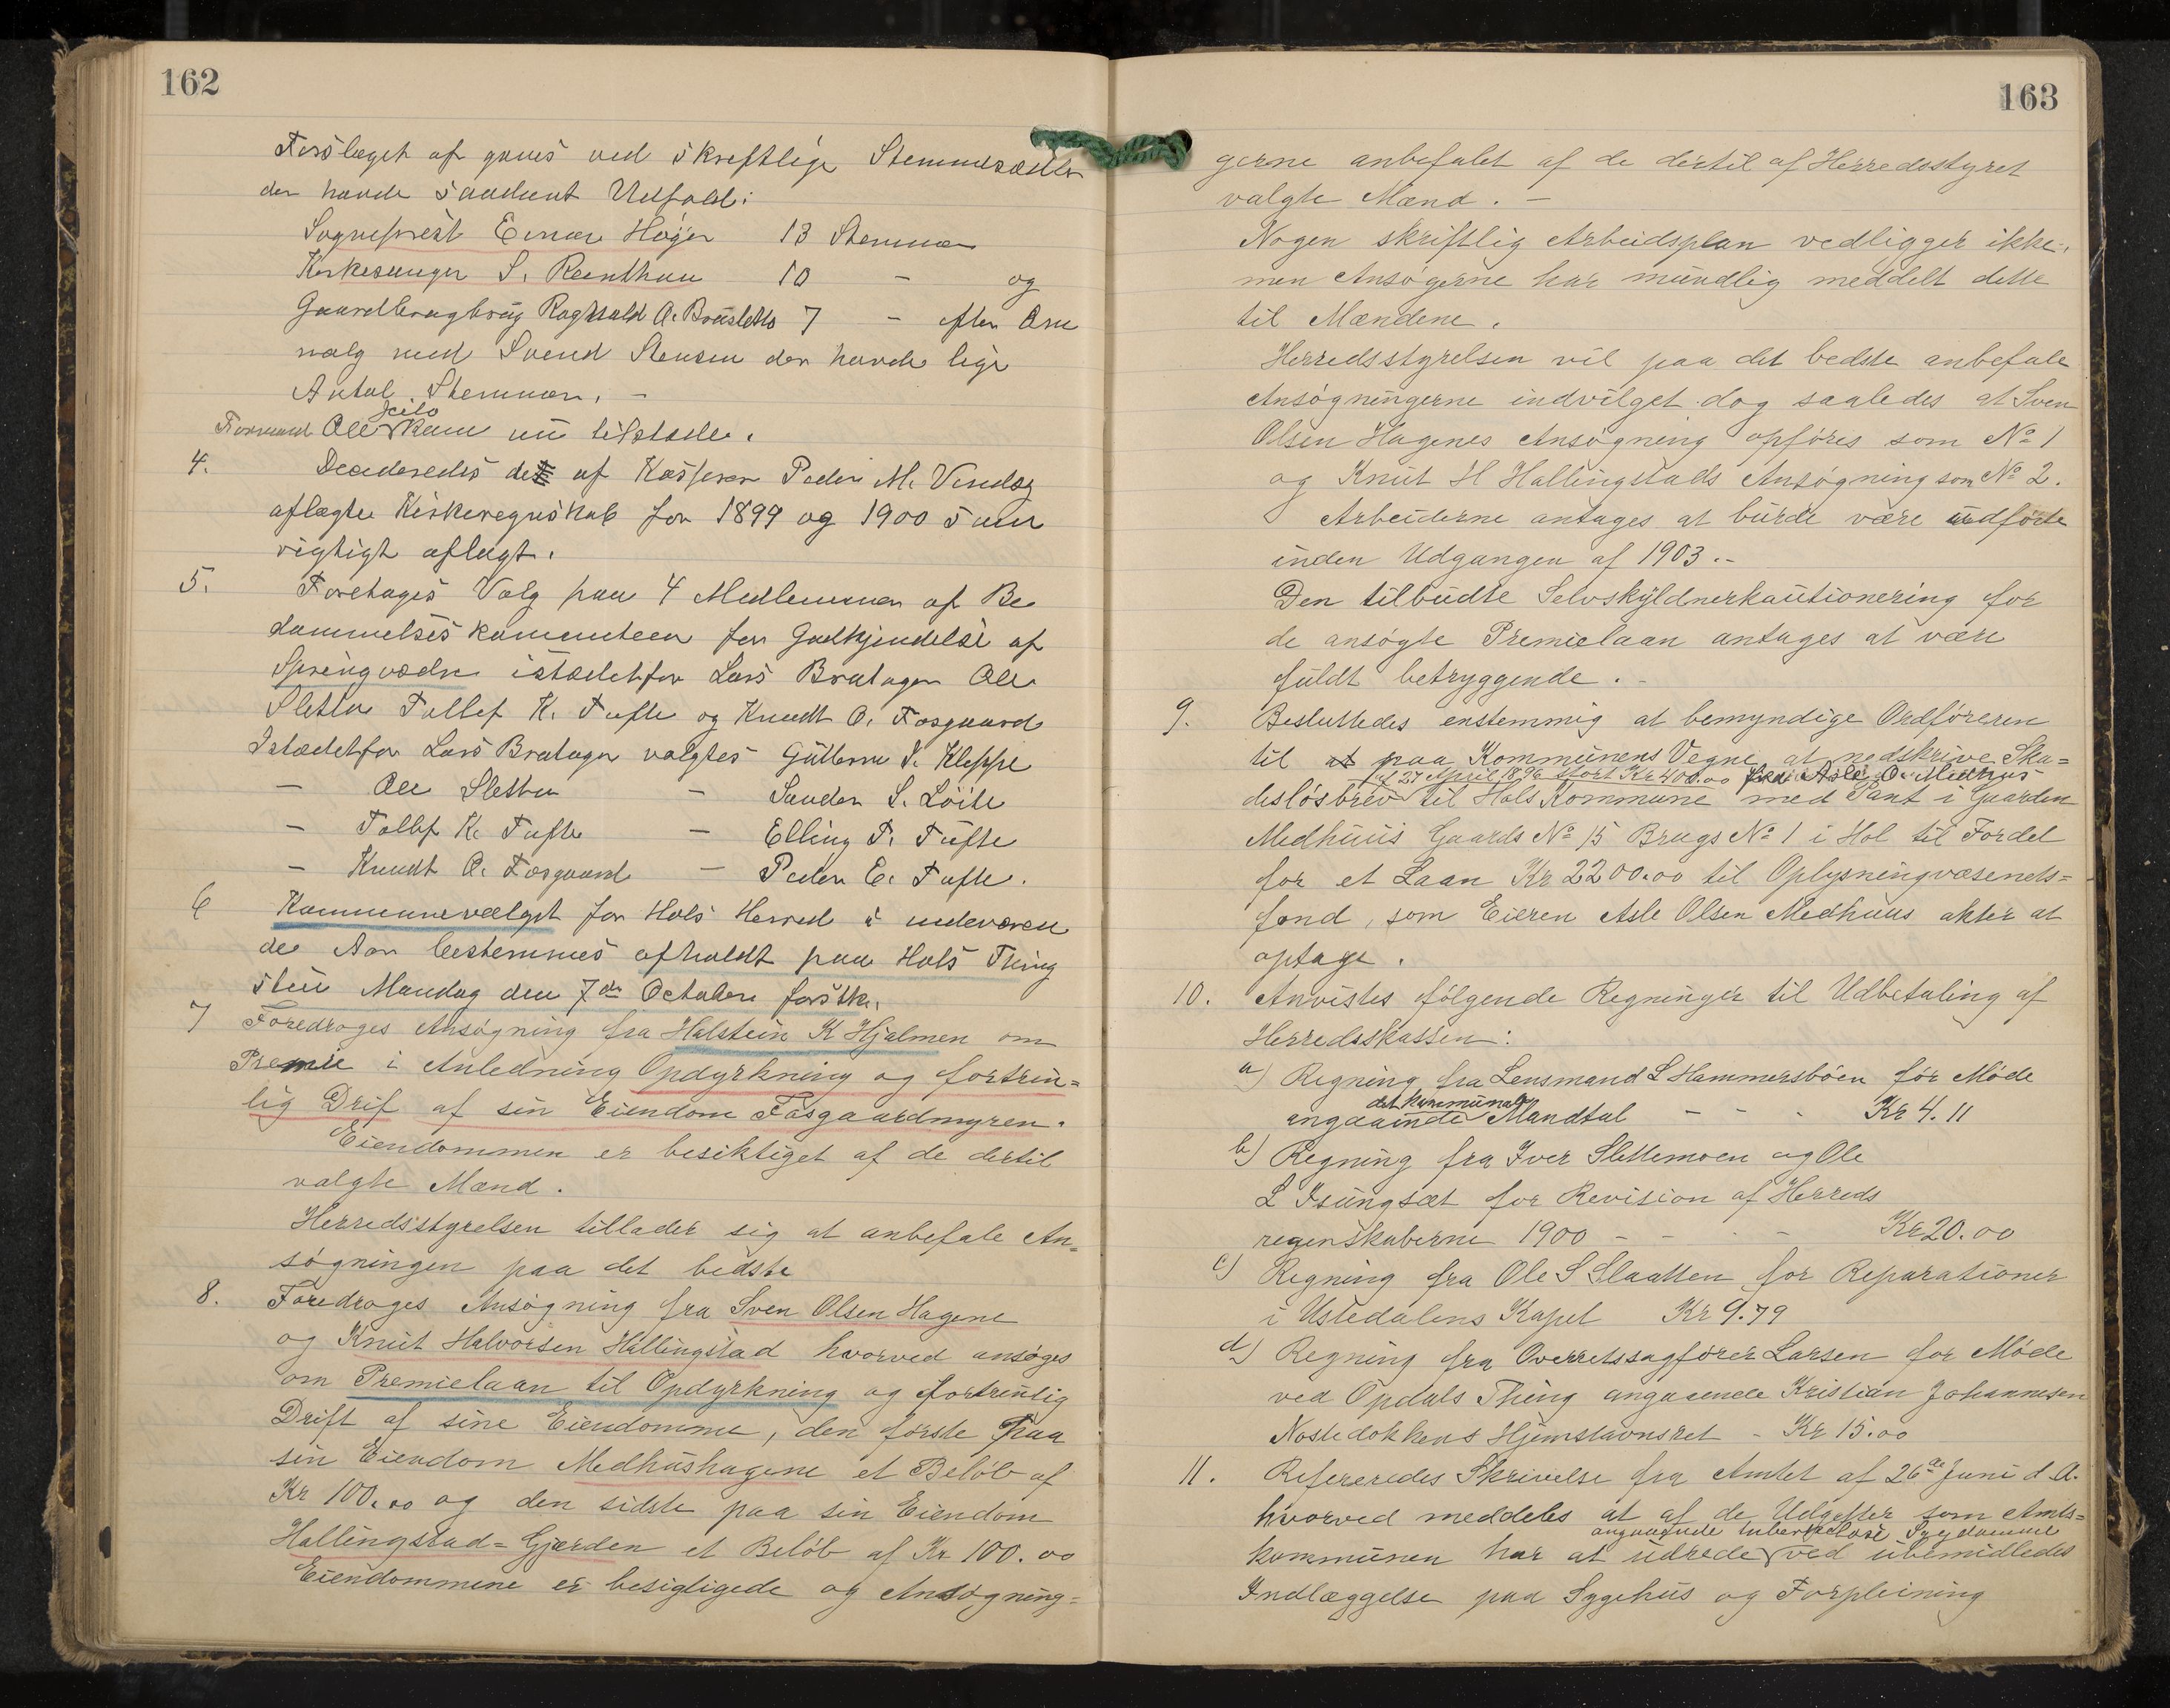 162
Forslaget afgaves ved skreftlige Stemmesedler
der havde saadant Udfald:
Sogneprest Einar Høyer 13 Stemmer
Kirkesanger S. Reinthon 10 – og
Gaardbrugbrug Raghvald A. Brusletto 7 – efter Om
valg med Svend Stensen der havde lige
Antal Stemmer. –
Formand Ole Jeilo Kam nu tilstede.
4. Decideredes det af Kasserer Peder M. Vindeg
aflagte Kirkeregnskab for 1899 og 1900 som
rigtigt aflagt.
5. Foretages Valg paa 4 Medlemmer af Be
dømmelses kommiteen for Godkjendelse af
Springvædre istædetfor Lars Bratager Ole
Sletto Tollef K. Tufte og Knudt O. Fosgaard
Istædetfor Lars Bratager valgtes Guttorm T. Kleppe
– Ole Sletten – Sander S. Löite
– Tollef K. Tufte – Elling T. Tufte
– Knudt O. Fosgaard – Peder E. Tufte.
6 Kommunevalget for Hols Herred i indeværen
de Aar bestemmes afholdt paa Hols Thing
stue Mandag den 7de October førstk.
7 Foredroges Ansøgning fra Halstein K Hjalmen om
Premie i Anledning Opdyrkning og fortrin=
lig Drif af sin Eiendom Fosgaardmyren.
Eiendommen er besiktiget af de dertil
valgte Mænd.
Herredsstyrelsen tillader sig at anbefale An=
søgningen paa det bedste
8. Foredroges Ansøgning fra Sven Olsen Hagene
og Knut Halvorsen Hallingstad hvorved ansøges
om Premielaan til Opdyrkning og fortrinlig
Drift af sine Eiendomme, den første paa
sin Eiendom Medhushagene et Beløb af
Kr 100.00 og den sidste paa sin Eiendom
Hallingstad=Gjærden et Beløb af Kr 100.00
Eiendommene er besigtigede og Ansøgning=
163
gerne anbefalet af de dertil af Herredsstyret
valgte Mænd. –
Nogen skriftlig Arbeidsplan vedligger ikke,
men Ansøgerne har mundlig meddelt dette
til Mændene.
Herredsstyrelsen vil paa det bedste anbefale
Ansøgningerne indvilget dog saaledes at Sven
Olsen Hagenes Ansøgning opføres som No 1
og Knut H Hallingstads Ansøgning som No 2.
Arbeiderne antages at burde være udførte
inden Udgangen af 1903. –
Den tilbudte Selvskyldnerkautionering for
de ansøgte Premielaan antages at være
fuldt betryggende. –
9. Besluttedes enstemmig at bemyndige Ordføreren
til at paa Kommunens Vegne at nedskrive Ska=
af 27 April 1896 stort Kr 400.00 fra Asle O. Medhus
desløsbrev til Hols Kommune med Pant i Gaarden
Medhuus Gaards No 15 Brugs No 1 i Hol til Fordel
for et Laan Kr 2200.00 til Oplysningvæsenets=
fond, som Eieren Asle Olsen Medhuus akter at
optage.
10. Anvistes følgende Regninger til Udbetaling af
Herredskassen:
a) Regning fra Lensmand L Hammersbøen for Møde
det kommunale
angaaende Mandtal – – – Kr 4.11
b) Regning fra Iver Slettemoen og Ole
L Isungset for Revision af Herreds
regenskaberne 1900 – – – – Kr 20.00
c) Regning fra Ole S Slaatten for Reparationer
i Ustedalens Kapel Kr 9.79
d) Regning fra Overretssagfører Larsen for Møde
ved Opdals Thing angaaende Kristian Johannesen
Nostedokkens Hjemstavnsret – Kr 15.00
11. Refereredes Skrivelse fra Amtet af 26de Juni d.A.
hvorved meddeles at af de Udgifter som Amts=
angaaende tuberkuløse Sygdomme
kommunen har at udrede ved ubemidledes
Indlæggelse paa Sygehus og Forpleining